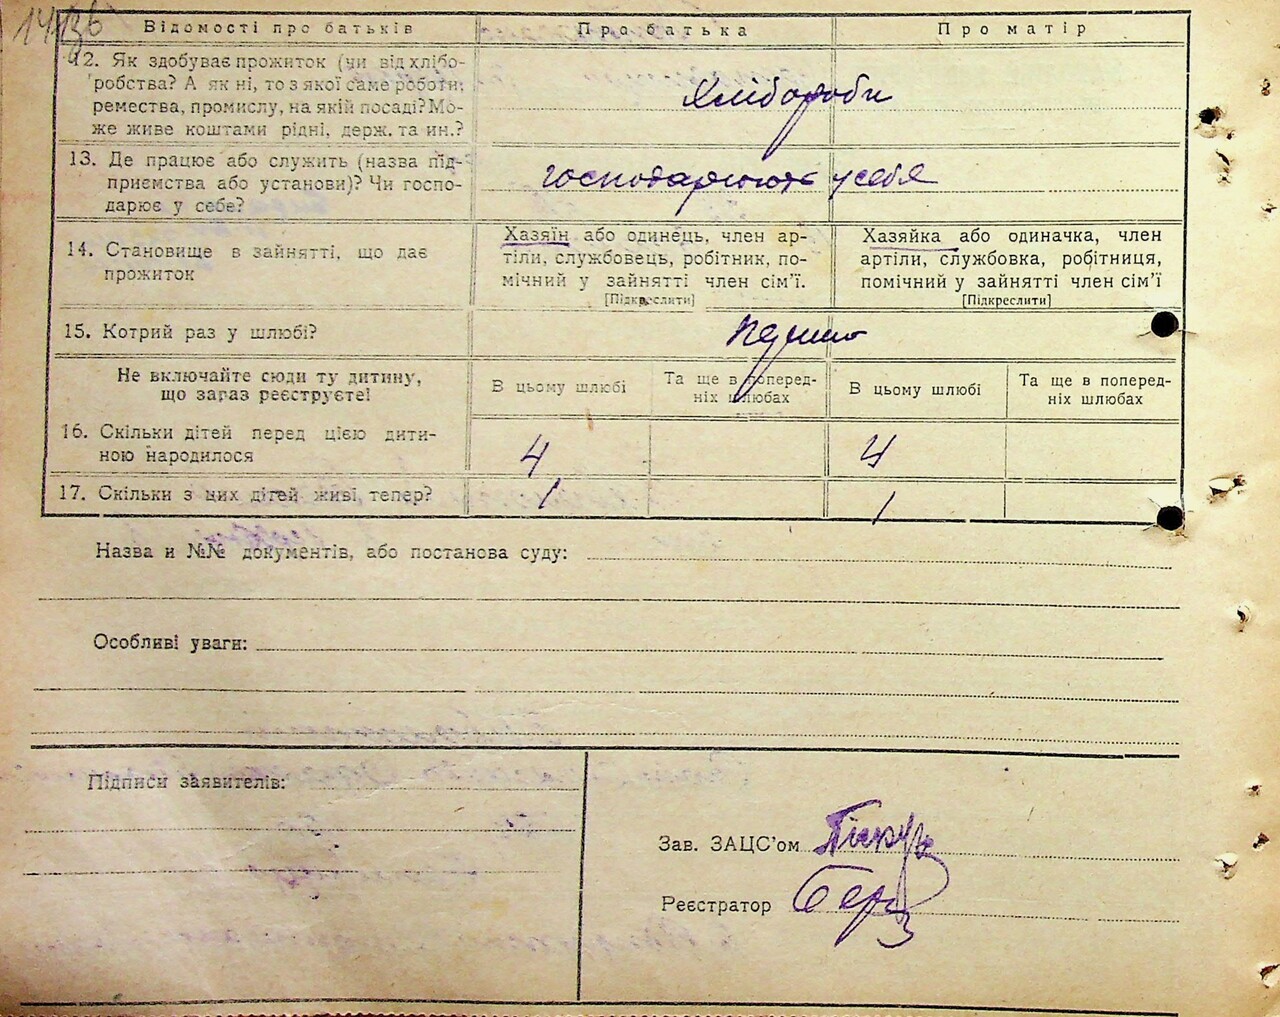 Відомості про батьків Про батька Про матір
12. Як здобуває прожиток (чи від хлібо-
робства? А як ні, то з якої саме роботи,
ремества, промислу, на якій посаді? Мо-
же живе коштами рідні, держ. та ин.?
Хлібороби
13. Де працює або служить (назва під-
приємства або установи)? Чи госпо-
дарює у себе?
господарюють у себя
14. Становище в зайнятті, що дає
прожиток
Хазяїн або одинець, член ар-
тіли, службовець, робітник, по-
мічний у зайнятті член сім'ї.
[Підкреслити]
Хазяйка або одиначка, член
артіли, службовка, робітниця,
помічний у зайнятті член сім'ї
[Підкреслити]
15. Котрий раз у шлюбі?
Не включайте сюди ту дитину,
що зараз реєструєте!
В цьому шлюбі
Та ще в поперед-
ніх шлюбах
В цьому шлюбі
Та ще в поперед-
ніх шлюбах
16. Скільки дітей перед цією дити-
ною народилося
4 4
17. Скільки з них дітей живі тепер? 1 1
Назва и №№ документів, або постанова суду:
Особливі уваги:
Підписи заявителів:
Зав. ЗАЦС'ом
Реєстратор